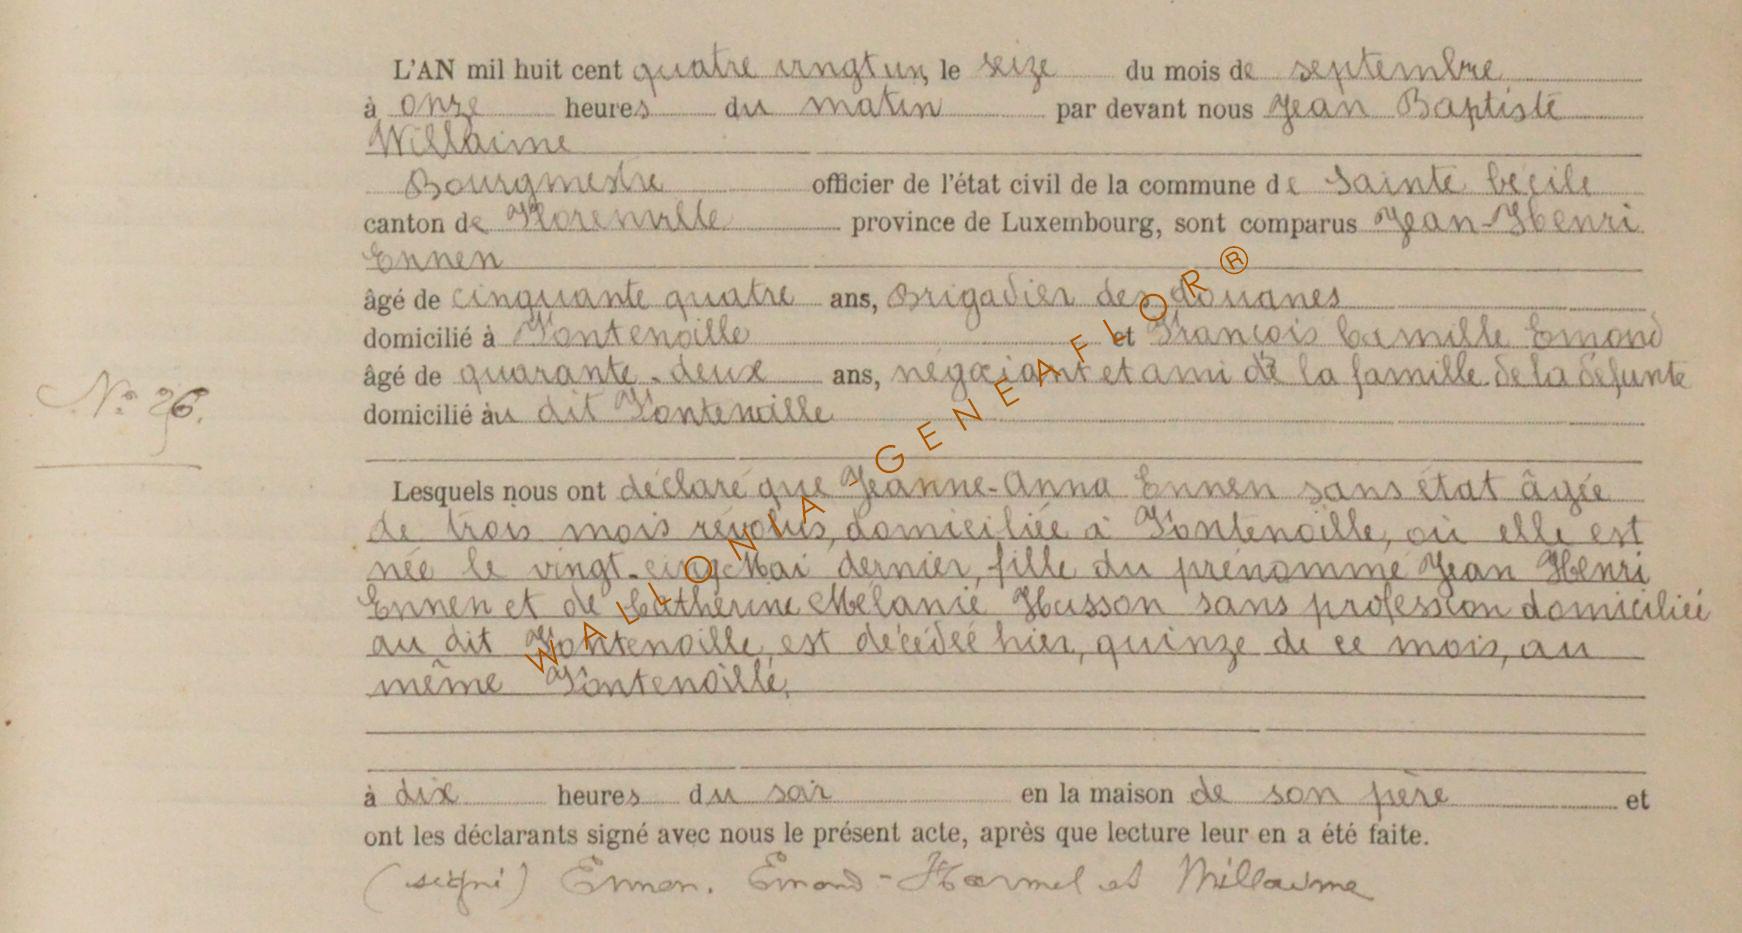 L'AN mil huit cent quatre vingt un, le seize du mois de septembre
à onze heures du matin par devant nous Jean Baptiste
Willaime
Bourgmestre officier de l'état civil de la commune de Sainte Cécile
canton de Florenville province de Luxembourg, sont comparus Jean-Henri
Ennen
âgé de cinquante quatre ans, Brigadier des douanes
domicilié à Fontenoille et François Camille Emond
âgé de quarante-deux ans, négociant et ami de la famille de la défunte
domicilié au dit Fontenoille
N° 26.
Lesquels nous ont déclaré que Jeanne-Anna Ennen sans état âgée
de trois mois révolus, domiciliée à Fontenoille, où elle est
née le vingt-cinq Mai dernier, fille du prénommé Jean Henri
Ennen et de Catherine Mélanie Husson sans profession domiciliée
au dit Fontenoille, est décédée hier, quinze de ce mois, au
même Fontenoille,
à dix heures du soir en la maison de son père et
ont les déclarants signé avec nous le présent acte, après que lecture leur en a été faite.
(signé) Ennen. Emond-Harmel et Willaime
WALLONIA-GENEAFLOR®